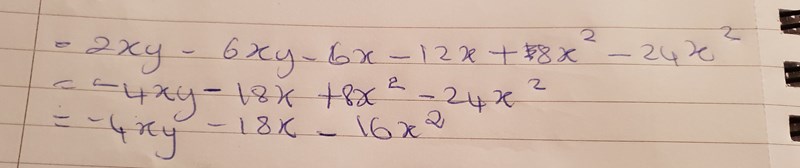 = 2xy - 6xy - 6x - 12x + 8x² - 24x²
= -4xy - 18x + 8x² - 24x²
= -4xy - 18x - 16x²